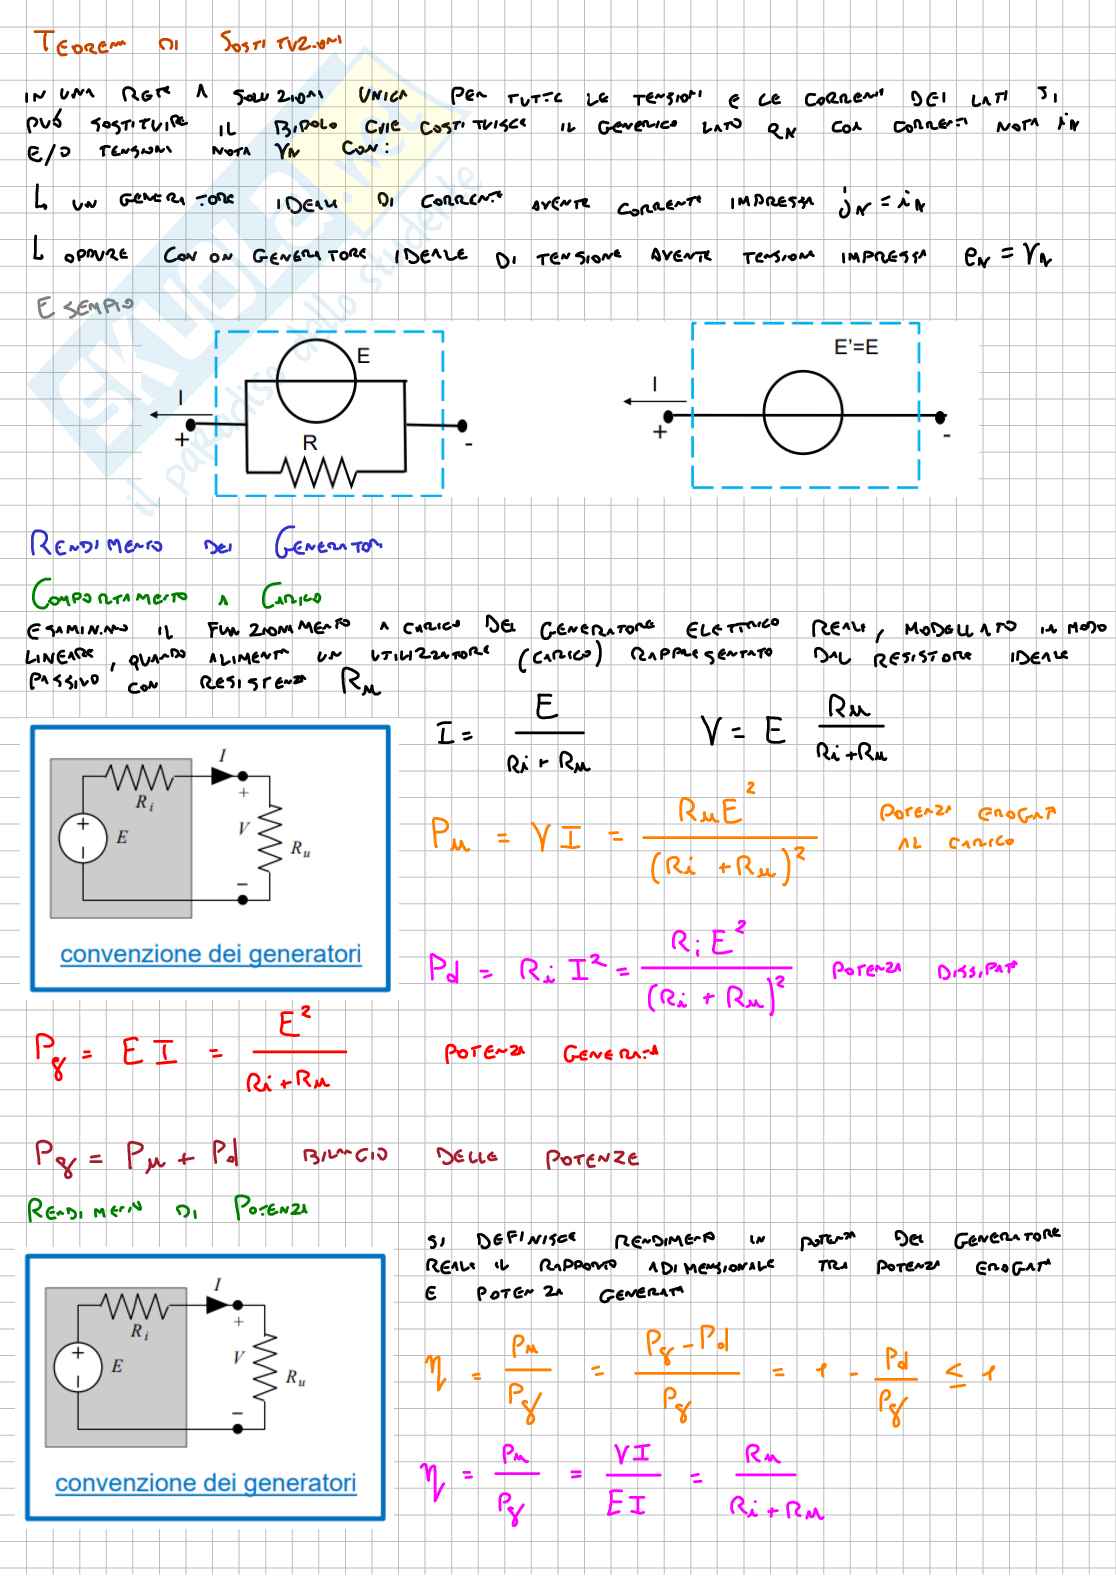 TEOREMA DI SOSTITUZIONI
IN UNA RETE A SOLUZIONI UNICA PER TUTTE LE TENSIONI E LE CORRENTI DEI LATI SI
PUÒ SOSTITUIRE IL BIPOLO CHE COSTITUISCE IL GENERICO LATO RN CON CORRENTI NOTA iN
E/O TENSIONI NOTA VN CON:
↳ UN GENERATORE IDEALE DI CORRENTE AVENTE CORRENTE IMPRESSA jN = iN
↳ OPPURE CON UN GENERATORE IDEALE DI TENSIONE AVENTE TENSIONE IMPRESSA eN = VN
ESEMPIO
E
I
+
R
-
E'=E
I
+
-
RENDIMENTO DEI GENERATORI
COMPORTAMENTO A CARICO
ESAMINIAMO IL FUNZIONAMENTO A CARICO DEL GENERATORE ELETTRICO REALE, MODELLATO IN MODO
LINEARE, QUANDO ALIMENTA UN UTILIZZATORE (CARICO) RAPPRESENTATO DAL RESISTORE IDEALE
PASSIVO CON RESISTENZA Ru
I = E / (Ri + Ru)   V = E Ru / (Ri + Ru)
I
Ri
+
+
E
V
Ru
-
convenzione dei generatori
Pu = VI = RuE² / (Ri + Ru)²   POTENZA EROGATA
AL CARICO
Pd = Ri I² = Ri E² / (Ri + Ru)²   POTENZA DISSIPATA
Pg = EI = E² / (Ri + Ru)   POTENZA GENERATA
Pg = Pu + Pd   BILANCIO DELLE POTENZE
RENDIMENTO DI POTENZA
SI DEFINISCE RENDIMENTO IN POTENZA DEL GENERATORE
REALE IL RAPPORTO ADIMENSIONALE TRA POTENZA EROGATA
E POTENZA GENERATA
I
Ri
+
+
E
V
Ru
-
convenzione dei generatori
η = Pu / Pg = (Pg - Pd) / Pg = 1 - Pd / Pg ≤ 1
η = Pu / Pg = VI / EI = Ru / (Ri + Ru)
SKUOLA.net
il paradiso dello studente